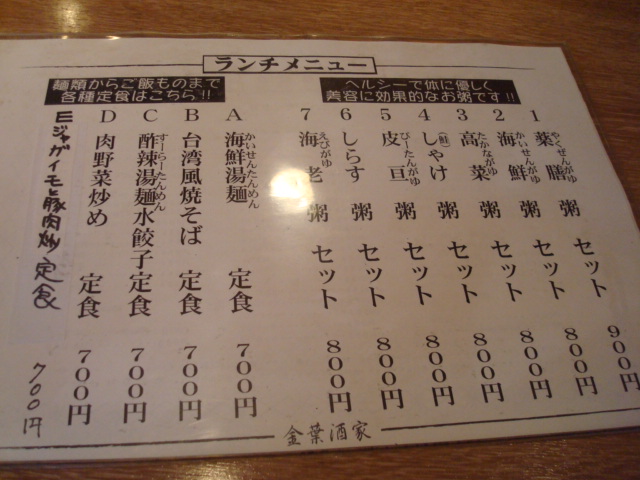 ランチメニュー
ヘルシーで体に優しく
美容に効果的なお粥です!!
1 薬膳粥 セット 900円
やくぜんがゆ
2 海鮮粥 セット 800円
かいせんがゆ
3 高菜粥 セット 800円
たかながゆ
4 しゃけ(鮭)粥 セット 800円
5 皮亘粥 セット 800円
ぴーたんがゆ
6 しらす粥 セット 800円
7 海老粥 セット 800円
えびがゆ
麺類からご飯ものまで
各種定食はこちら!!
A 海鮮湯麺 定食 700円
かいせんたんめん
B 台湾風焼そば 定食 700円
C 酢辣湯麺水餃子定食 700円
すーらーたんめん
D 肉野菜炒め 定食 700円
E ジャガイモと豚肉炒め定食 700円
金葉酒家